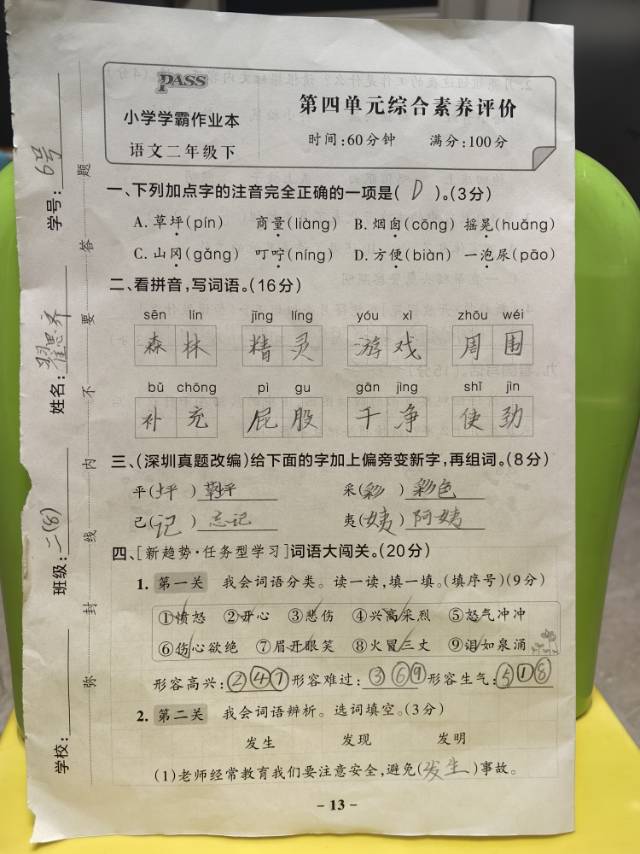 PASS
小学学霸作业本
语文二年级下
第四单元综合素养评价
时间:60分钟 满分:100分
一、下列加点字的注音完全正确的一项是( D )。(3分)
A. 草坪(pín) 商量(liàng) B. 烟囱(cōng) 摇晃(huǎng)
C. 山冈(gǎng) 叮咛(níng) D. 方便(biàn) 一泡尿(pāo)
二、看拼音,写词语。(16分)
sēn lín jīng líng yóu xì zhōu wéi
森林 精灵 游戏 周围
bǔ chōng pì gu gān jìng shǐ jìn
补充 屁股 干净 使劲
三、(深圳真题改编)给下面的字加上偏旁变新字,再组词。(8分)
平(坪) 草坪 采(彩) 彩色
己(记) 忘记 夷(姨) 阿姨
四、[新趋势·任务型学习]词语大闯关。(20分)
1. 第一关 我会词语分类。读一读,填一填。(填序号)(9分)
①愤怒 ②开心 ③悲伤 ④兴高采烈 ⑤怒气冲冲
⑥伤心欲绝 ⑦眉开眼笑 ⑧火冒三丈 ⑨泪如泉涌
形容高兴:②④⑦ 形容难过:③⑥⑨ 形容生气:⑤①⑧
2. 第二关 我会词语辨析。选词填空。(3分)
发生 发现 发明
(1)老师经常教育我们要注意安全,避免(发生)事故。
- 13 -
学校:
班级:二(8)
姓名:翟思齐
学号:6号
弥 封 线 内 不 要 答 题